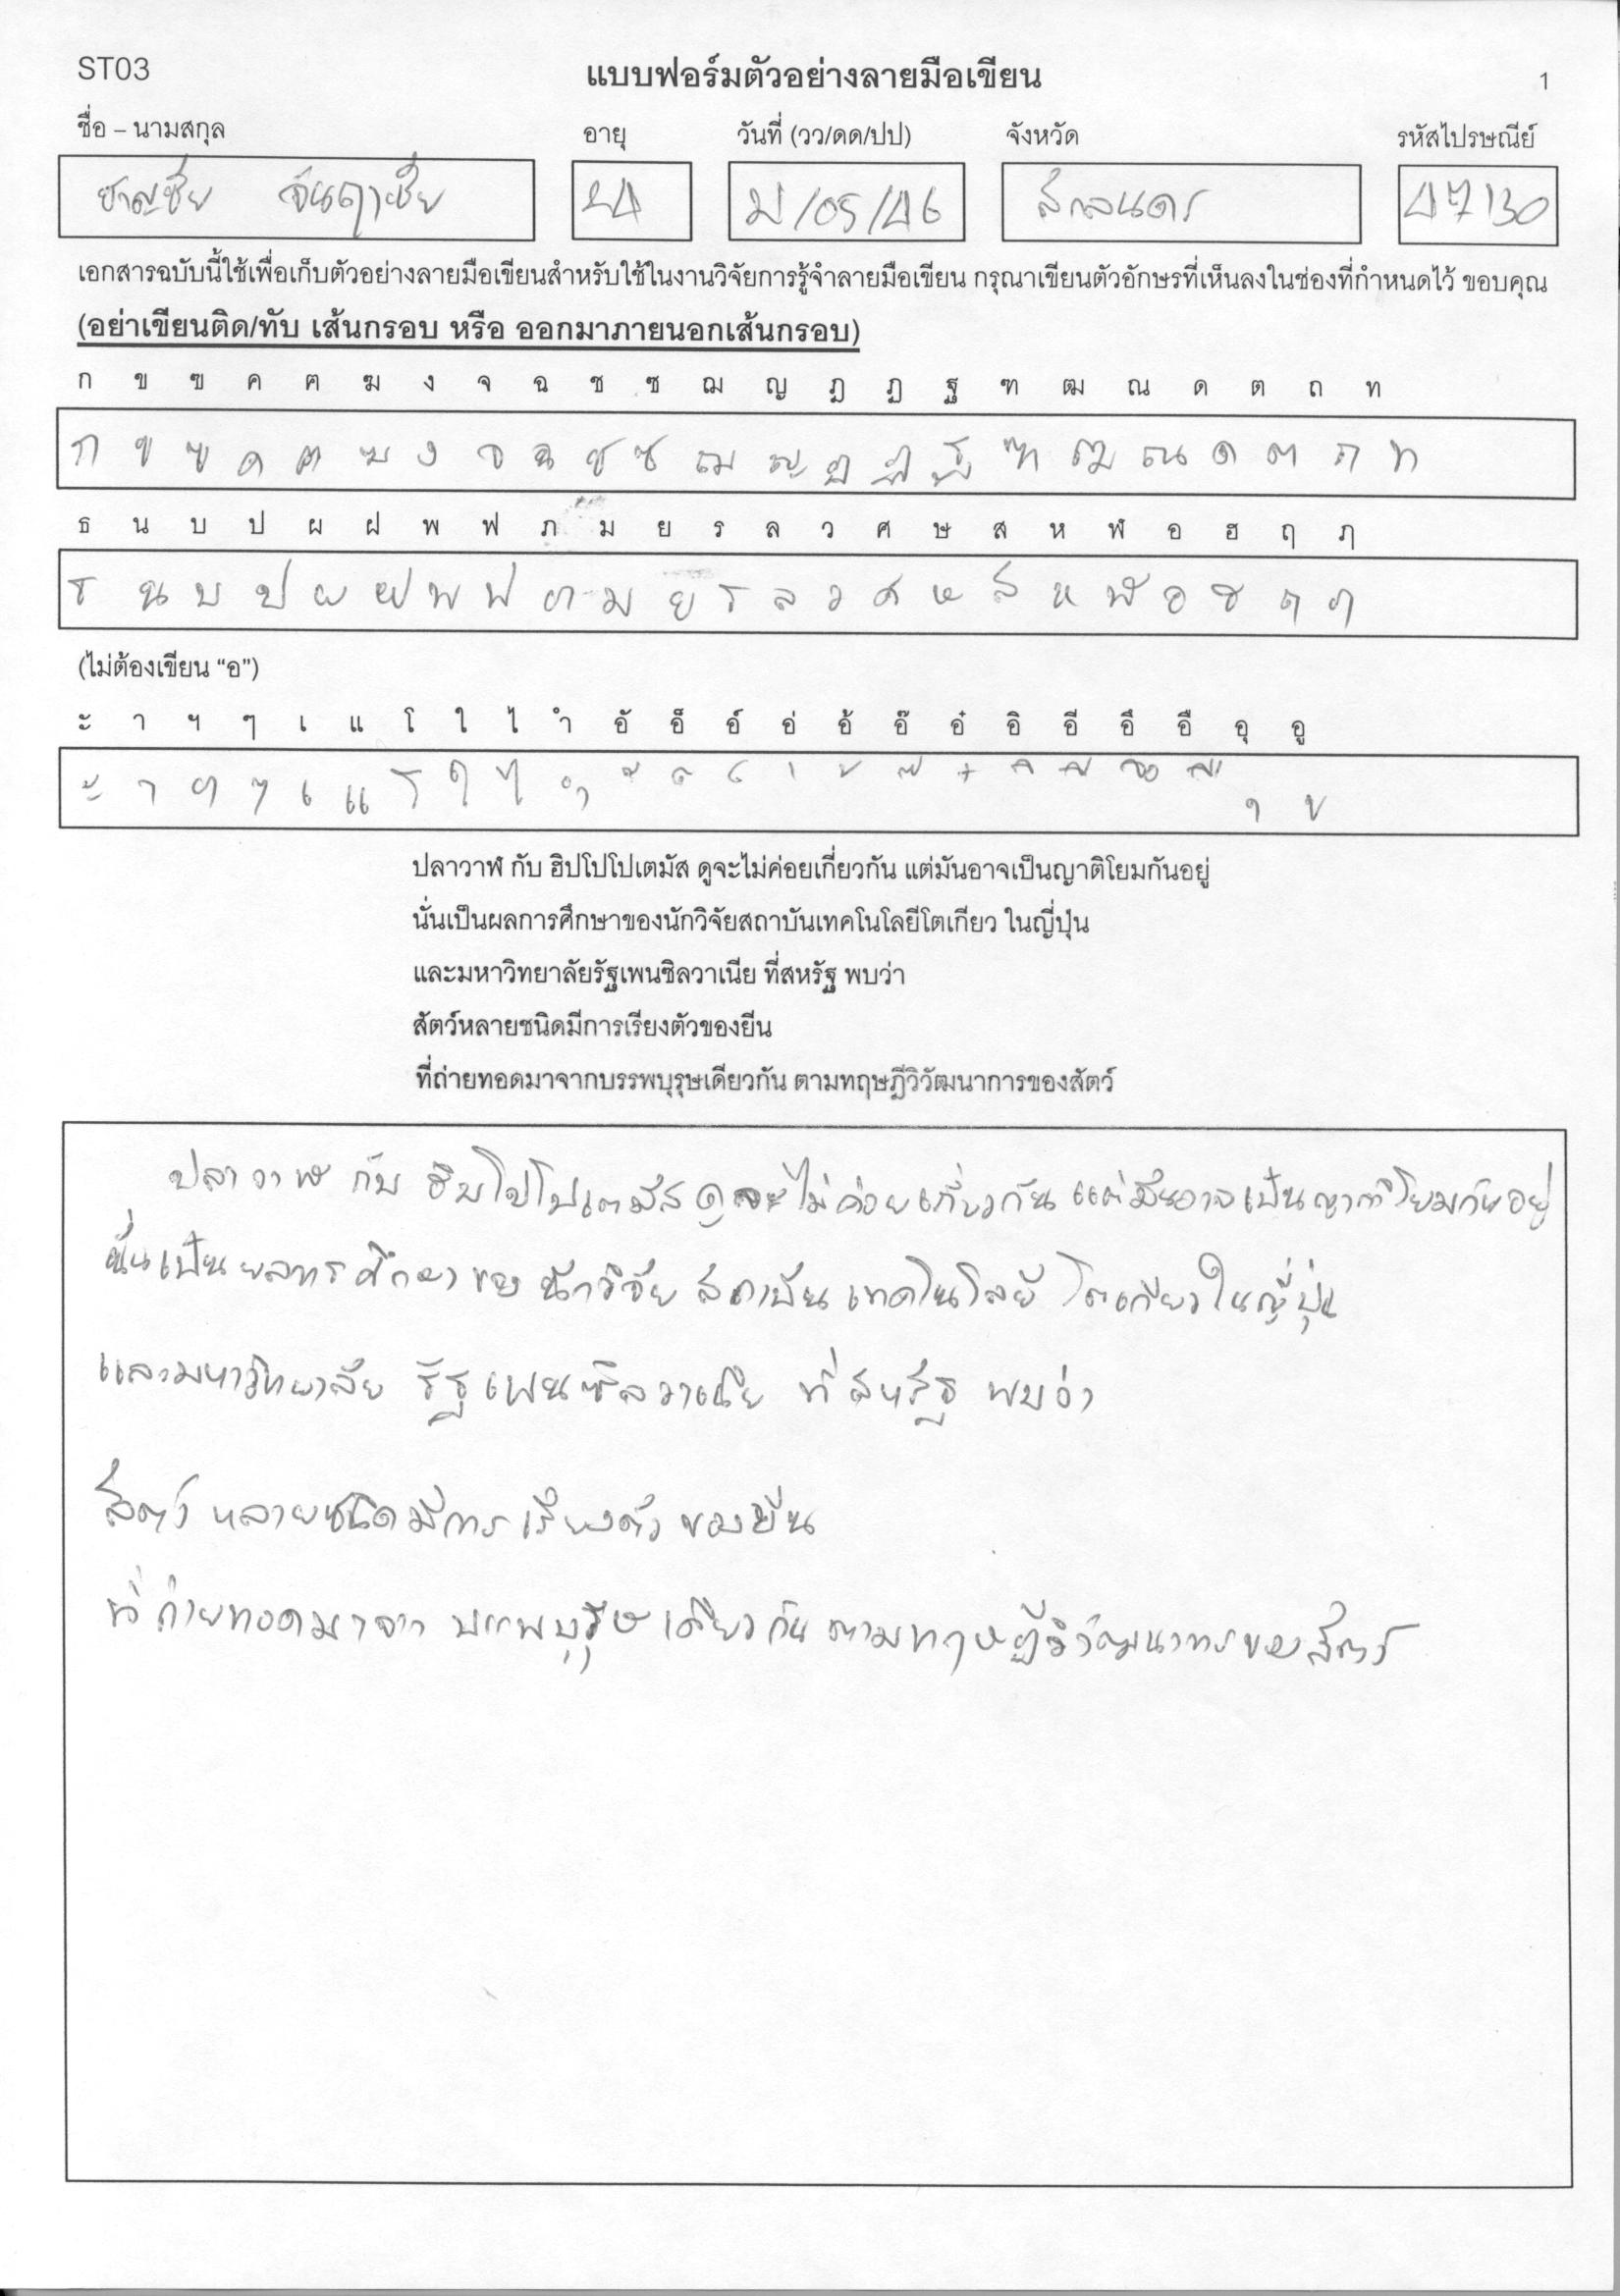 ST03
แบบฟอร์มตัวอย่างลายมือเขียน
1
ชื่อ – นามสกุล อายุ วันที่ (วว/ดด/ปป) จังหวัด รหัสไปรษณีย์
ชาญชัย /05/46 สกลนคร 47130
เอกสารฉบับนี้ใช้เพื่อเก็บตัวอย่างลายมือเขียนสำหรับใช้ในงานวิจัยการรู้จำลายมือเขียน กรุณาเขียนตัวอักษรที่เห็นลงในช่องที่กำหนดไว้ ขอบคุณ
(อย่าเขียนติด/ทับ เส้นกรอบ หรือ ออกมาภายนอกเส้นกรอบ)
ก ข ฃ ค ฅ ฆ ง จ ฉ ช ซ ฌ ญ ฎ ฏ ฐ ฑ ฒ ณ ด ต ถ ท
ก ข ฃ ค ฅ ฆ ง จ ฉ ช ซ ฌ ญ ฎ ฏ ฐ ฑ ฒ ณ ด ต ถ ท
ธ น บ ป ผ ฝ พ ฟ ภ ม ย ร ล ว ศ ษ ส ห ฬ อ ฮ ฤ ฦ
ธ น บ ป ผ ฝ พ ฟ ภ ม ย ร ล ว ศ ษ ส ห ฬ อ ฮ ฤ ฦ
(ไม่ต้องเขียน “อ”)
ะ า ฯ ๆ เ แ โ ใ ไ ำ อั อ็ อ์ อ่ อ้ อ๊ อ๋ อิ อี อึ อื อุ อู
ะ า ฯ ๆ เ แ โ ใ ไ ำ ั ็ ์ ่ ้ ๊ ๋ ิ ี ึ ื ุ ู
ปลาวาฬ กับ ฮิปโปโปเตมัส ดูจะไม่ค่อยเกี่ยวกัน แต่มันอาจเป็นญาติโยมกันอยู่
นั่นเป็นผลการศึกษาของนักวิจัยสถาบันเทคโนโลยีโตเกียว ในญี่ปุ่น
และมหาวิทยาลัยรัฐเพนซิลวาเนีย ที่สหรัฐ พบว่า
สัตว์หลายชนิดมีการเรียงตัวของยีน
ที่ถ่ายทอดมาจากบรรพบุรุษเดียวกัน ตามทฤษฎีวิวัฒนาการของสัตว์
ปลาวาฬ กับ ฮิบโปโปเตมัส ดูจะไม่ค่อยเกี่ยวกัน แต่มันอาจเป็นญาติโยมกันอยู่
นั่นเป็นผลการศึกษาของ นักวิจัย สถาบัน เทคโนโลยี โตเกียว ในญี่ปุ่น
และมหาวิทยาลัย รัฐเพนซิลวาเนีย ที่สหรัฐ พบว่า
สัตว์ หลายชนิดมีการ เรียงตัว ของยีน
ที่ ถ่ายทอดมาจาก บรรพบุรุษ เดียวกัน ตามทฤษฎีวิวัฒนาการของสัตว์